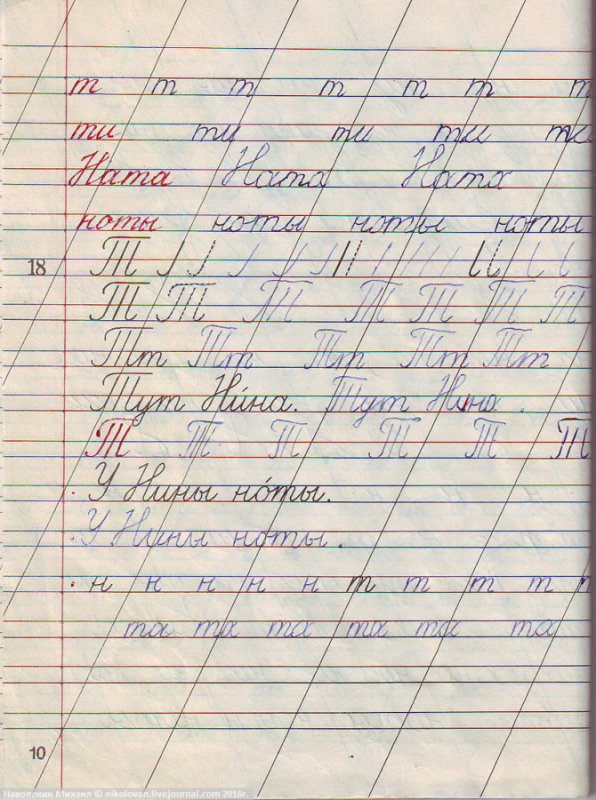 т т т т т т т
ти ти ти ти ти
Ната Ната Ната
ноты ноты ноты ноты
18 Т
Т Т Т Т Т Т Т
Тт Тт Тт Тт Тт
Тут Ни́на. Тут Нина.
Т Т Т Т Т Т
У Нины но́ты.
У Нины ноты.
н н н н н т т т т т
та та та та та та
10
Наволокин Михаил © nikolovzn.livejournal.com 2016г.